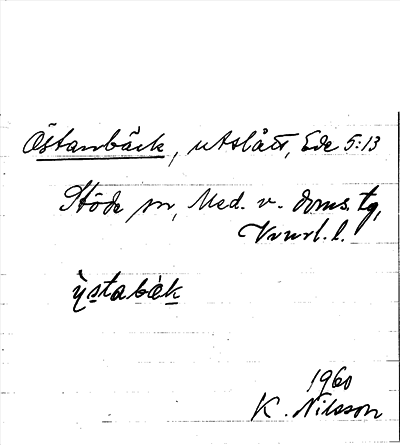 Östanbäck, utslått, Ede 5:13
Stöde sn, Med. v. doms. tg,
Vnrl. l.
ỳstabàk
1960
K. Nilsson